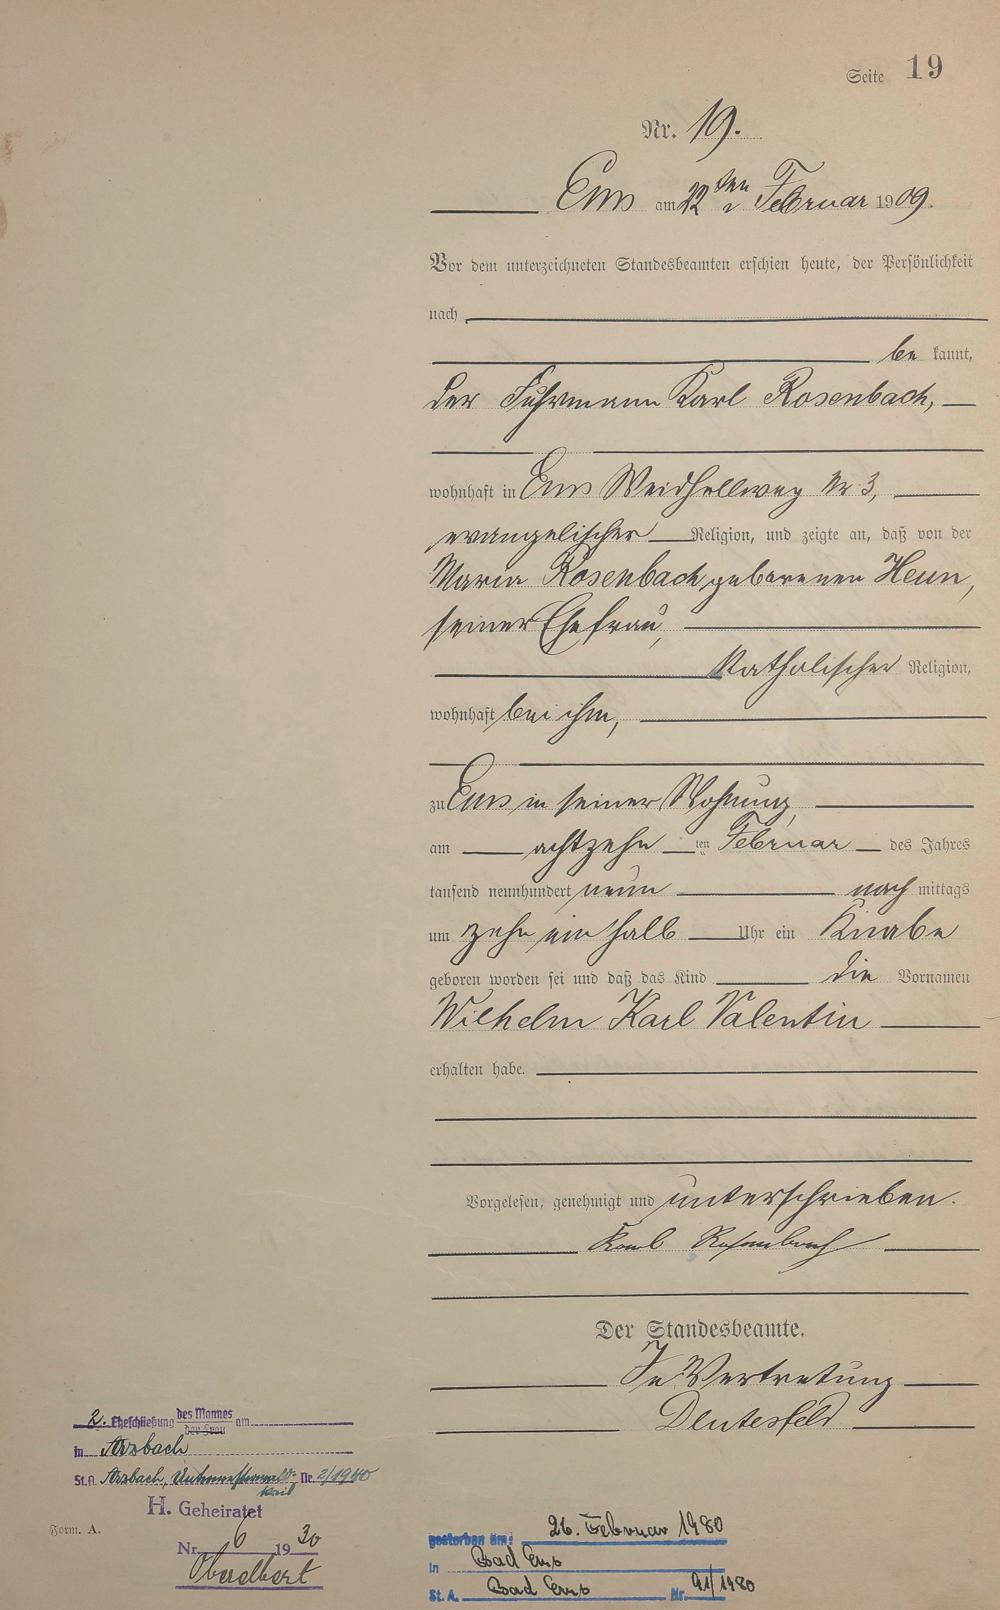 Seite 19
Nr. 19.
Ems am 22ten Februar 1909.
Vor dem unterzeichneten Standesbeamten erschien heute, der Persönlichkeit
nach
be kannt,
der Fuhrmann Karl Rosenbach,
wohnhaft in Ems Weidhellweg Nr 3,
evangelischer Religion, und zeigte an, daß von der
Maria Rosenbach geborenen Heun,
seiner Ehefrau,
katholischer Religion,
wohnhaft bei ihm,
zu Ems in seiner Wohnung,
am achtzehn ten Februar des Jahres
tausend neunhundert neun nach mittags
um zehn ein halb Uhr ein Knabe
geboren worden sei und daß das Kind die Vornamen
Wilhelm Karl Valentin
erhalten habe.
Vorgelesen, genehmigt und unterschrieben.
Karl Rosenbach
Der Standesbeamte.
In Vertretung
2. Eheschließung des Mannes am
der Frau
in Arzbach
St.A. Arzbach, Nr. 2/1940
H. Geheiratet
Form. A.
Nr. 6 1930
Oberelbert
gestorben am: 26. Februar 1980
in Bad Ems
St. A. Bad Ems Nr. 91/1980